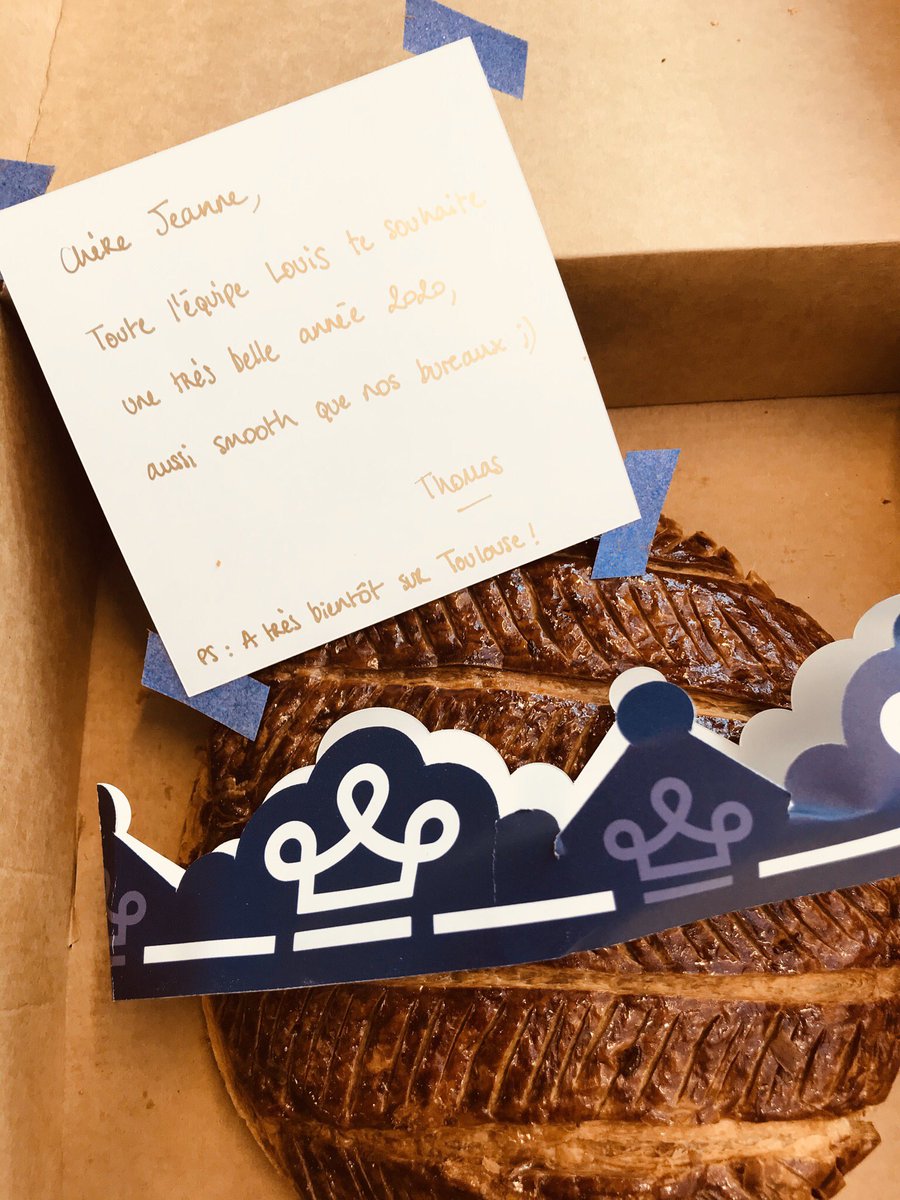 Chère Jeanne,
Toute l'équipe Louis te souhaite
une très belle année 2020,
aussi smooth que nos bureaux ;)
Thomas
PS : A très bientôt sur Toulouse !